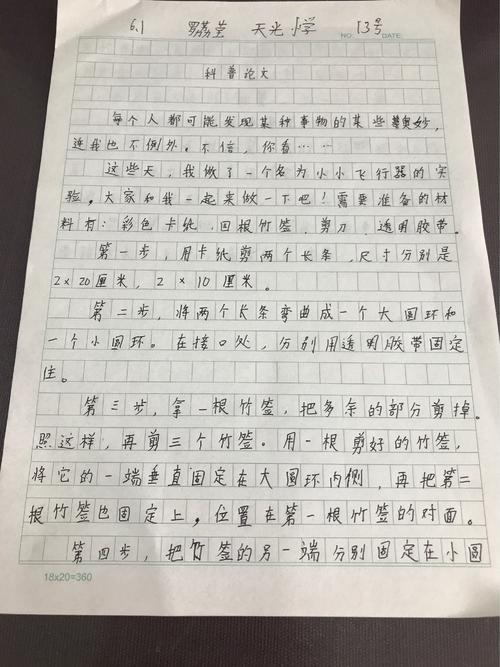 6.1 罗荔莹 天光小学 13号
NO. DATE:
科普论文
每个人都可能发现某种事物的某些奥妙，
连我也不例外。不信，你看……
这些天，我做了一个名为小小飞行器的实
验。大家和我一起来做一下吧！需要准备的材
料有：彩色卡纸、四根竹签、剪刀、透明胶带。
第一步，用卡纸剪两个长条，尺寸分别是
2×20厘米，2×10厘米。
第二步，将两个长条弯曲成一个大圆环和
一个小圆环。在接口处，分别用透明胶带固定
住。
第三步，拿一根竹签，把多余的部分剪掉。
照这样，再剪三个竹签。用一根剪好的竹签，
将它的一端垂直固定在大圆环内侧，再把第二
根竹签也固定上，位置在第一根竹签的对面。
第四步，把竹签的另一端分别固定在小圆
18x20=360